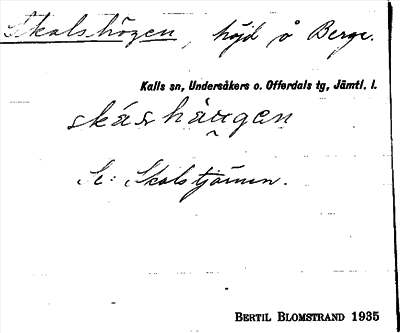 Skalshögen, höjd å Berge.
Kalls sn, Undersåkers o. Offerdals tg, Jämtl. l.
Se: Skalstjärnen.
BERTIL BLOMSTRAND 1935